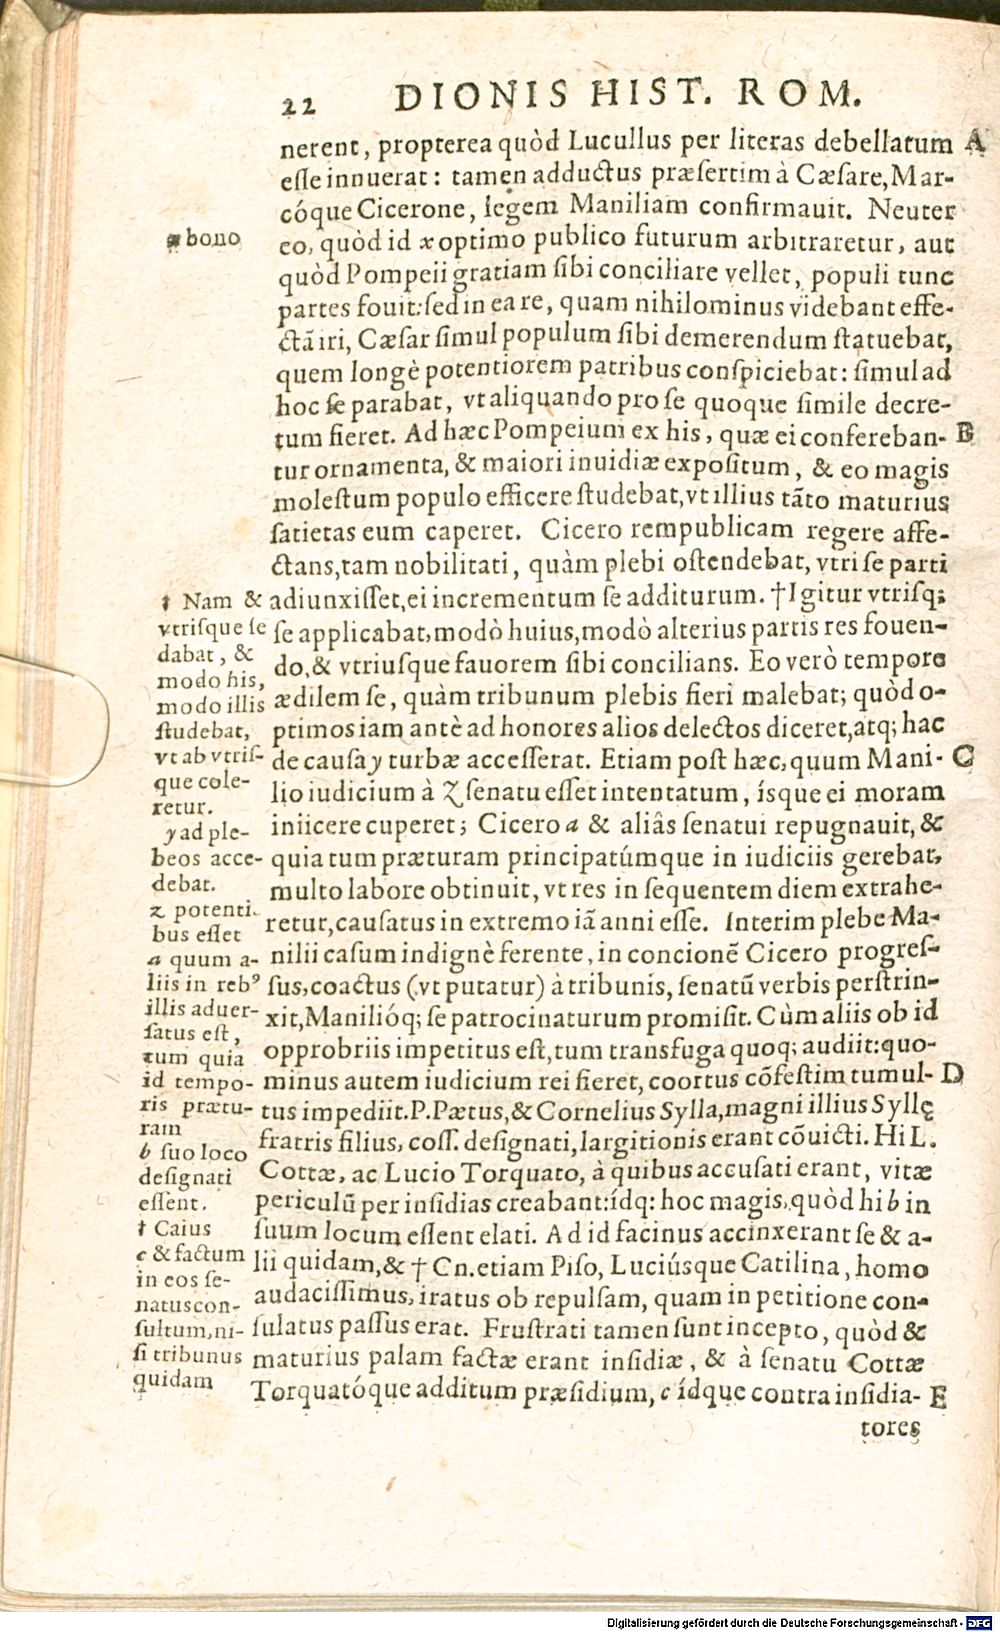 22 DIONIS HIST. ROM.
nerent, propterea quòd Lucullus per literas debellatum A
eſſe innuerat: tamen adductus præſertim à Cæſare, Mar-
cóque Cicerone, legem Maniliam confirmauit. Neuter
eo, quòd id x optimo publico futurum arbitraretur, aut
quòd Pompeii gratiam ſibi conciliare vellet, populi tunc
partes fouit: ſed in ea re, quam nihilominus videbant effe-
ctā iri, Cæſar ſimul populum ſibi demerendum ſtatuebat,
quem longè potentiorem patribus conſpiciebat: ſimul ad
hoc ſe parabat, vt aliquando pro ſe quoque ſimile decre-
tum fieret. Ad hæc Pompeium ex his, quæ ei confereban- B
tur ornamenta, & maiori inuidiæ expoſitum, & eo magis
moleſtum populo efficere ſtudebat, vt illius tāto maturius
ſatietas eum caperet. Cicero rempublicam regere affe-
ctans, tam nobilitati, quàm plebi oſtendebat, vtri ſe parti
adiunxiſſet, ei incrementum ſe additurum. † Igitur vtriſq;
ſe applicabat, modò huius, modò alterius partis res fouen-
do, & vtriuſque fauorem ſibi concilians. Eo verò tempore
ædilem ſe, quàm tribunum plebis fieri malebat; quòd o-
ptimos iam antè ad honores alios delectos diceret, atq; hac
de causa y turbæ acceſſerat. Etiam poſt hæc, quum Mani- C
lio iudicium à z ſenatu eſſet intentatum, ísque ei moram
iniicere cuperet; Cicero a & aliâs ſenatui repugnauit, &
quia tum præturam principatúmque in iudiciis gerebat,
multo labore obtinuit, vt res in ſequentem diem extrahe-
retur, cauſatus in extremo iā anni eſſe. Interim plebe Ma-
nilii caſum indignè ferente, in concionē Cicero progreſ-
ſus, coactus (vt putatur) à tribunis, ſenatū verbis perſtrin-
xit, Manilióq; ſe patrocinaturum promiſit. Cùm aliis ob id
opprobriis impetitus eſt, tum transfuga quoq; audiit: quo-
minus autem iudicium rei fieret, coortus cōfeſtim tumul- D
tus impediit. P. Pætus, & Cornelius Sylla, magni illius Syllę
fratris filius, coſſ. deſignati, largitionis erant cōuicti. Hi L.
Cottæ, ac Lucio Torquato, à quibus accuſati erant, vitæ
periculū per inſidias creabant: ídq: hoc magis, quòd hi b in
ſuum locum eſſent elati. Ad id facinus accinxerant ſe & a-
lii quidam, & † Cn. etiam Piſo, Luciúsque Catilina, homo
audaciſſimus, iratus ob repulſam, quam in petitione con-
ſulatus paſſus erat. Fruſtrati tamen ſunt incepto, quòd &
maturius palam factæ erant inſidiæ, & à ſenatu Cottæ
Torquatóque additum præſidium, c ídque contra inſidia- E
tores
x bono
† Nam &
vtriſque ſe
dabat, &
modo his,
modo illis
ſtudebat,
vt ab vtriſ-
que cole-
retur.
y ad ple-
beos acce-
debat.
z potenti-
bus eſſet
a quum a-
liis in rebꝰ
illis aduer-
ſatus eſt,
tum quia
id tempo-
ris prætu-
ram
b ſuo loco
deſignati
eſſent.
† Caius
c & factum
in eos ſe-
natuscon-
ſultum, ni-
ſi tribunus
quidam
Digitalisierung gefördert durch die Deutsche Forschungsgemeinschaft - DFG